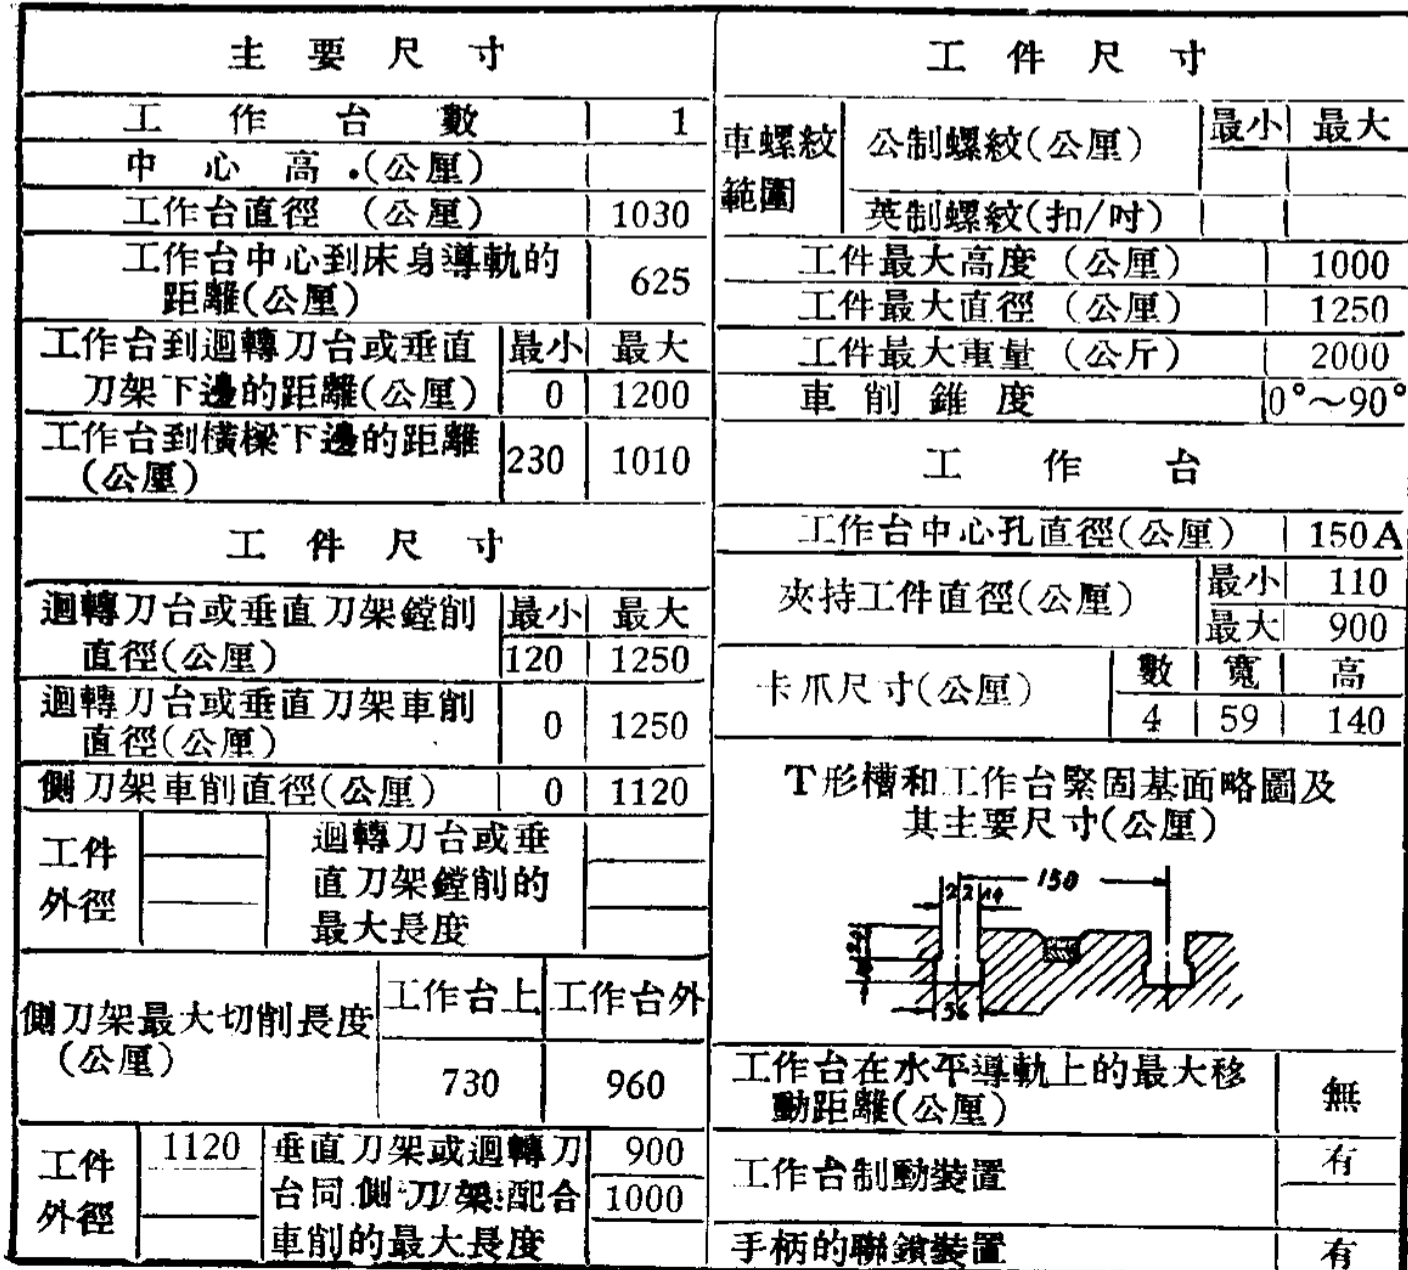 主要尺寸
工作台數 1
中心高.(公厘)
工作台直徑 (公厘) 1030
工作台中心到床身導軌的
距離(公厘) 625
工作台到迴轉刀台或垂直 最小 最大
刀架下邊的距離(公厘) 0 1200
工作台到橫樑下邊的距離
(公厘) 230 1010
工件尺寸
迴轉刀台或垂直刀架鏜削 最小 最大
直徑(公厘) 120 1250
迴轉刀台或垂直刀架車削
直徑(公厘) 0 1250
側刀架車削直徑(公厘) 0 1120
工件
外徑
迴轉刀台或垂
直刀架鏜削的
最大長度
側刀架最大切削長度
(公厘)
工作台上 工作台外
730 960
工件
外徑
1120
垂直刀架或迴轉刀
台同側刀架配合
車削的最大長度
900
1000
工件尺寸
車螺紋
範圍
公制螺紋(公厘) 最小 最大
英制螺紋(扣/吋)
工件最大高度 (公厘) 1000
工件最大直徑 (公厘) 1250
工件最大重量 (公斤) 2000
車削錐度 0°~90°
工作台
工作台中心孔直徑(公厘) 150A
夾持工件直徑(公厘)
最小 110
最大 900
卡爪尺寸(公厘)
數 寬 高
4 59 140
T形槽和工作台緊固基面略圖及
其主要尺寸(公厘)
150
56
工作台在水平導軌上的最大移
動距離(公厘) 無
工作台制動裝置 有
手柄的聯鎖裝置 有